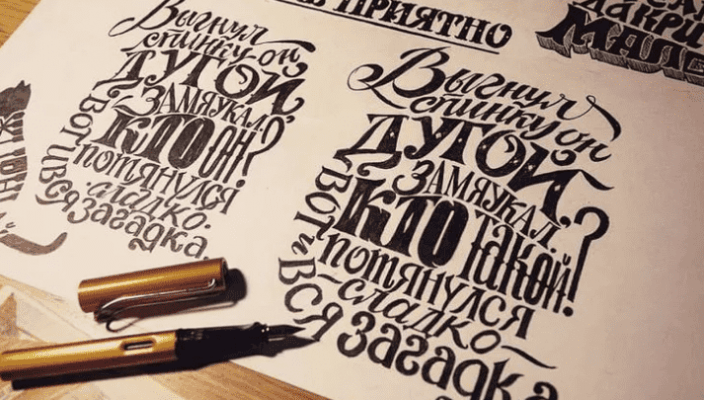 ПРИЯТНО
Выгнул
спинку он
ДУГОЙ.
ЗАМЯУКАЛ.
КТО ОН?
потянулся
сладко.
Вот и Вся загадка.
Выгнул
спинку он
ДУГОЙ.
ЗАМЯУКАЛ.
КТО ТАКОЙ?
ПОТЯНУЛСЯ
сладко
Вот и Вся загадка
ЛАКРИ
МАЛЕ